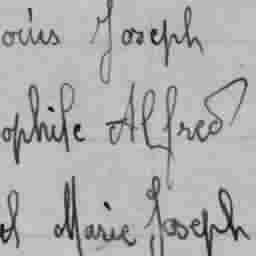 ocüs Joseph
ophile Alfred
el Marie Joseph